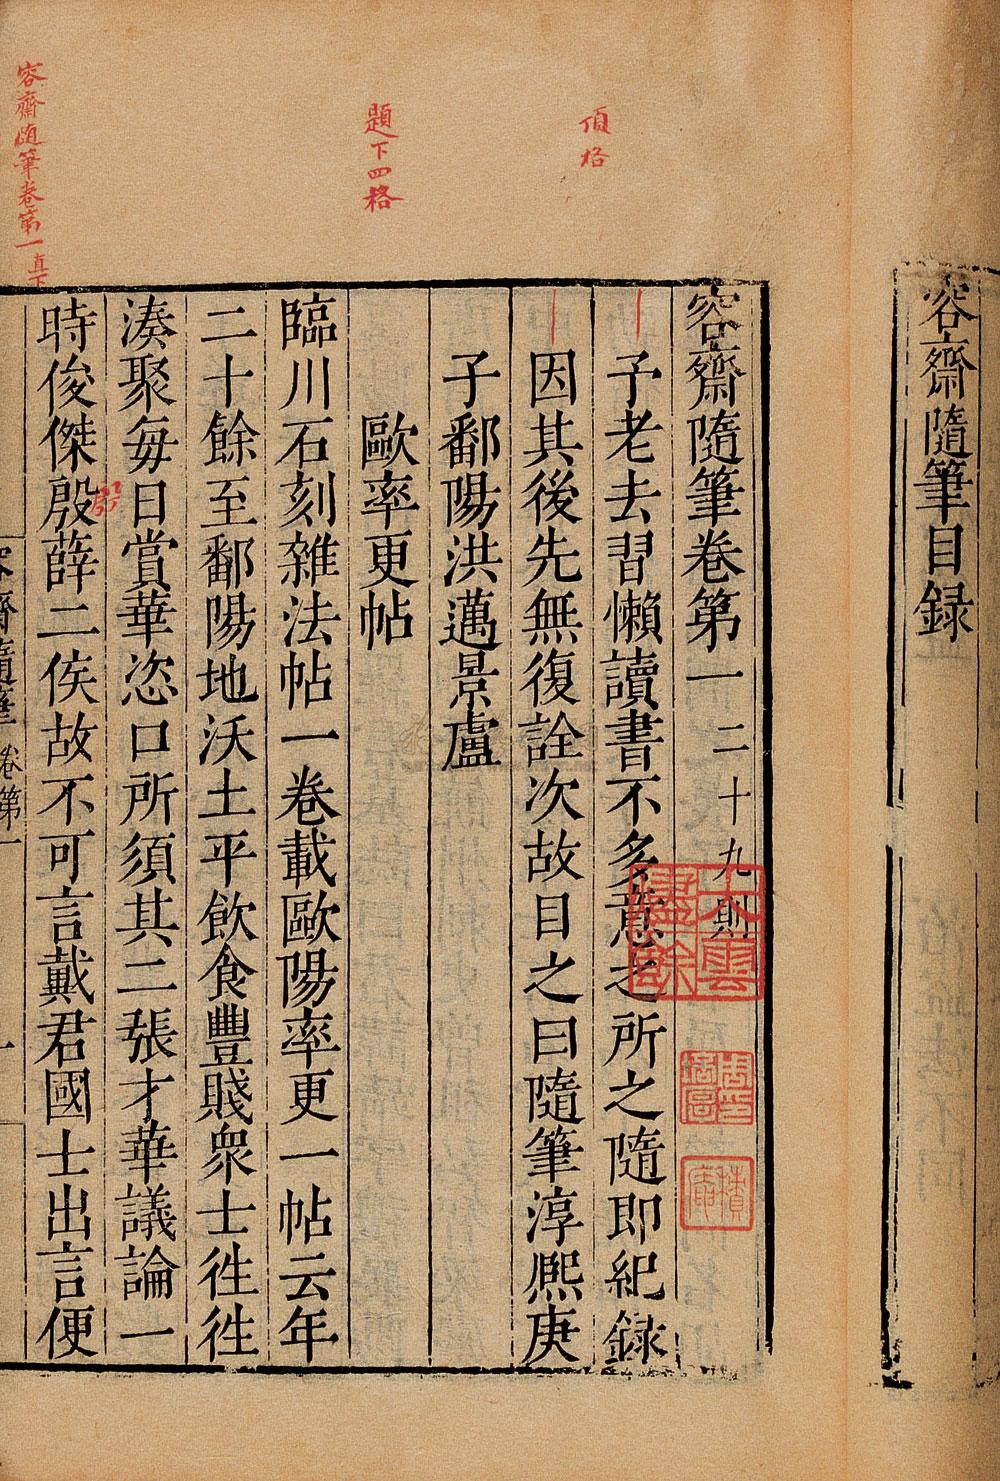 容齋隨筆目録
容齋隨筆卷第一 二十九則
予老去習懶讀書不多意之所之隨即紀録
因其後先無復詮次故目之曰隨筆淳熈庚
子鄱陽洪邁景盧
歐率更帖
臨川石刻雜法帖一卷載歐陽率更一帖云年
二十餘至鄱陽地沃土平飲食豐賤衆士徃徃
湊聚每日賞華恣口所須其二張才華議論一
時俊傑殷薛二侯故不可言戴君國士出言便
容齋隨筆卷第一
一
頂格
題下四格
容齋隨筆卷第一直下
大雲
燼餘